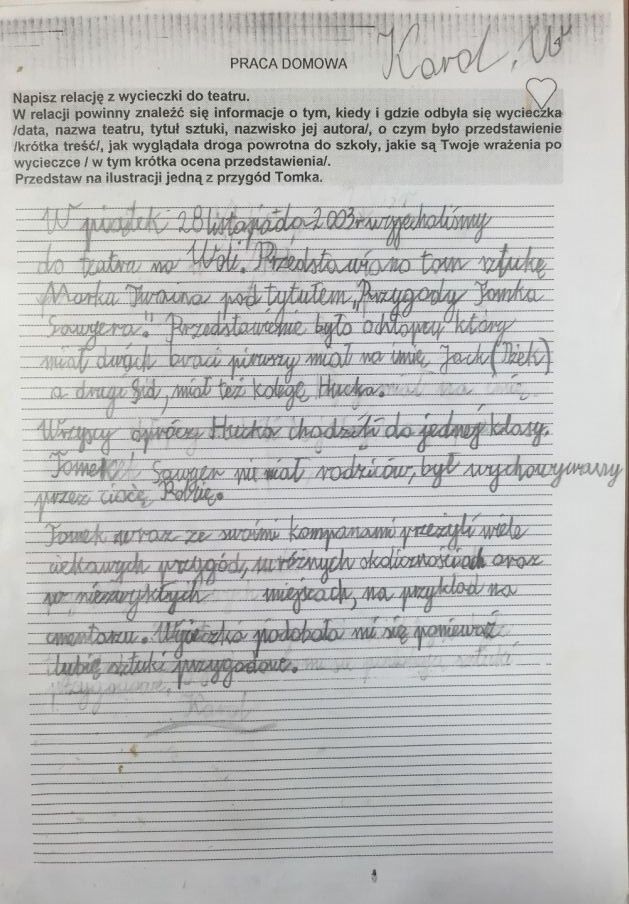 Karol. W
PRACA DOMOWA
Napisz relację z wycieczki do teatru.
W relacji powinny znaleźć się informacje o tym, kiedy i gdzie odbyła się wycieczka
/data, nazwa teatru, tytuł sztuki, nazwisko jej autora/, o czym było przedstawienie
/krótka treść/, jak wyglądała droga powrotna do szkoły, jakie są Twoje wrażenia po
wycieczce / w tym krótka ocena przedstawienia/.
Przedstaw na ilustracji jedną z przygód Tomka.
W piątek 28 listopada 2003r wyjechaliśmy
do teatru na Woli. Przedstawiano tam sztukę
Marka Twaina pod tytułem „Przygody Tomka
Sawyera." Przedstawienie było o chłopcy który
miał dwóch braci pierwszy miał na imię Jack (Dżek)
a drugi Sid, miał też kolegę Hucka.
Wszyscy oprócz Hucka chodzili do jednej klasy.
Tomek Sawyer nie miał rodziców, był wychowywany
przez ciocię Polcię.
Tomek wraz ze swoimi kompanami przeżyli wiele
ciekawych przygód, w różnych okolicznościach oraz
w niezwykłych miejscach, na przykład na
cmentarzu. Wycieczka podobała mi się ponieważ
lubię sztuki przygodowe.